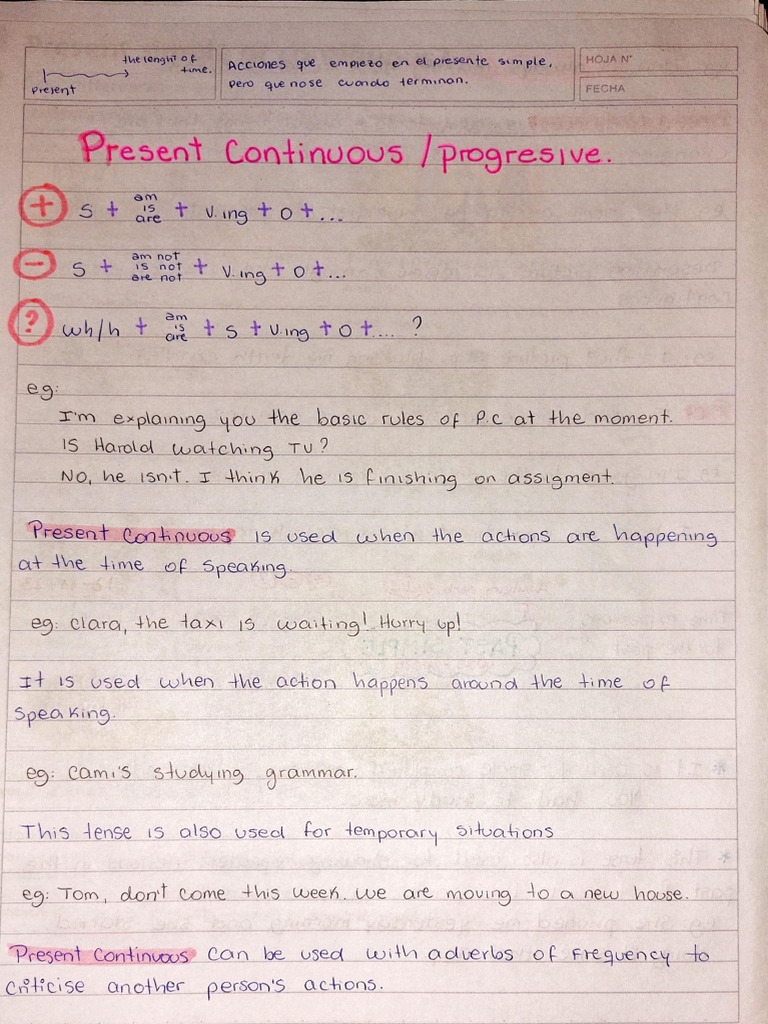 the lenght of
time.
present
Acciones que empiezo en el presente simple,
pero que no se cuando terminan.
HOJA N°
FECHA
Present Continuous / progresive.
+ S + am is are + V.ing + O + ...
- S + am not is not are not + V.ing + O + ...
? wh/h + am is are + S + V.ing + O + .... ?
eg:
I'm explaining you the basic rules of P.C at the moment.
Is Harold watching TV?
No, he isn't. I think he is finishing on assigment.
Present Continuous is used when the actions are happening
at the time of speaking.
eg: clara, the taxi is waiting! Hurry up!
It is used when the action happens around the time of
speaking.
eg: cami's studying grammar.
This tense is also used for temporary situations
eg: Tom, don't come this week. we are moving to a new house.
Present Continuous can be used with adverbs of frequency to
criticise another person's actions.